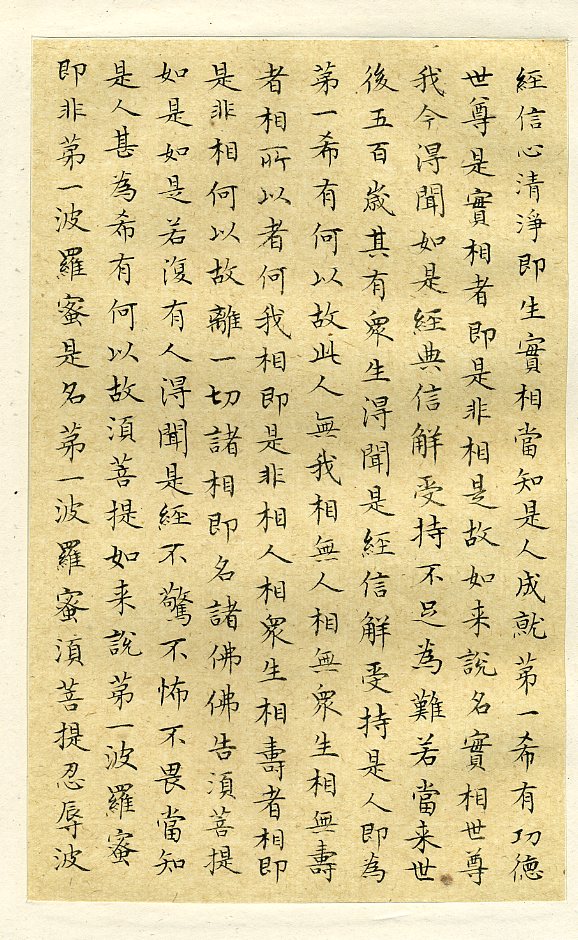 經信心清淨即生實相當知是人成就第一希有功德
世尊是實相者即是非相是故如来說名實相世尊
我今得聞如是經典信解受持不足為難若當来世
後五百歲其有眾生得聞是經信解受持是人即為
第一希有何以故此人無我相無人相無眾生相無壽
者相所以者何我相即是非相人相眾生相壽者相即
是非相何以故離一切諸相即名諸佛佛告須菩提
如是如是若復有人得聞是經不驚不怖不畏當知
是人甚為希有何以故須菩提如来說第一波羅蜜
即非第一波羅蜜是名第一波羅蜜須菩提忍辱波